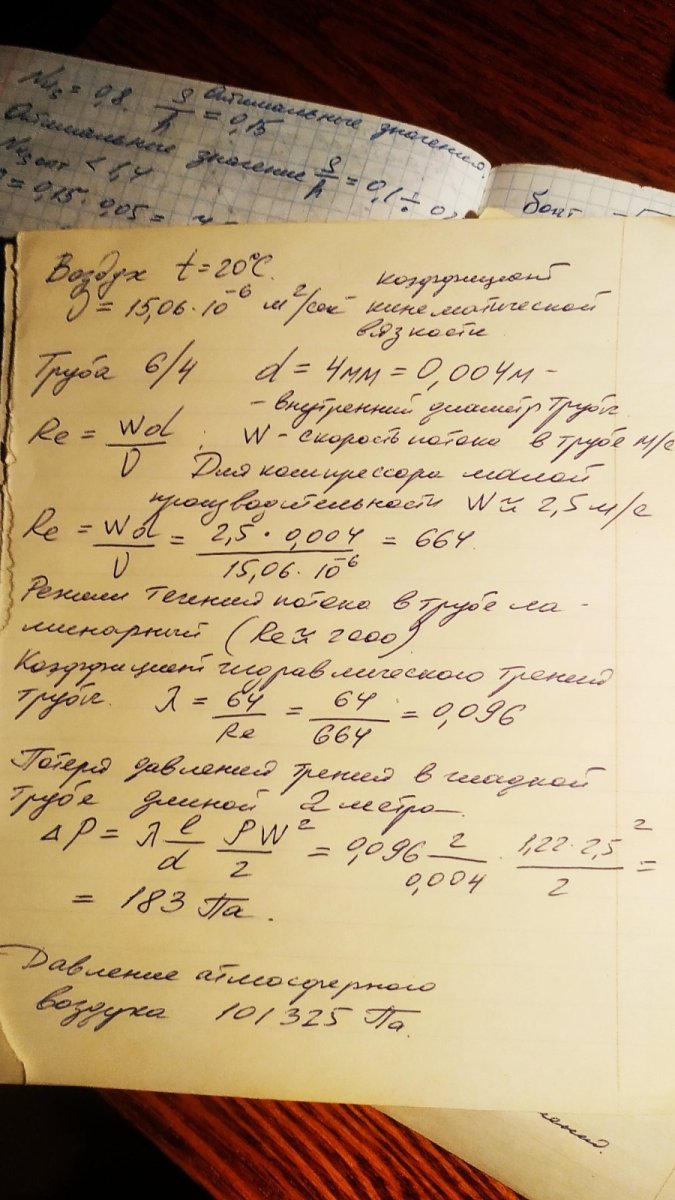 Nu₃ = 0,8. S/h = 0,15 Оптимальные значения.
Оптимальные значение S/h = 0,1 ÷
< 1,4
= 0,15 · 0,05 =
Воздух t = 20°C.
ν = 15,06 · 10⁻⁶ м²/сек – коэффициент
кинематической
вязкости
Труба 6/4 d = 4мм = 0,004м –
– внутренний диаметр трубы
Re = Wd/ν ; W – скорость потока в трубе м/с
Для компрессора малой
производительности W ≈ 2,5 м/с
Re = Wd/ν = 2,5 · 0,004 / 15,06 · 10⁻⁶ = 664.
Режим течений потока в трубе ла-
минарный (Re ≈ 2000)
Коэффициент гидравлического трений
трубы. λ = 64/Re = 64/664 = 0,096
Потеря давлений трений в гладкой
трубе длиной 2 метра.
ΔP = λ l/d ρW²/2 = 0,096 2/0,004 · 1,22 · 2,5²/2 =
= 183 Па.
Давление атмосферного
воздуха 101325 Па.